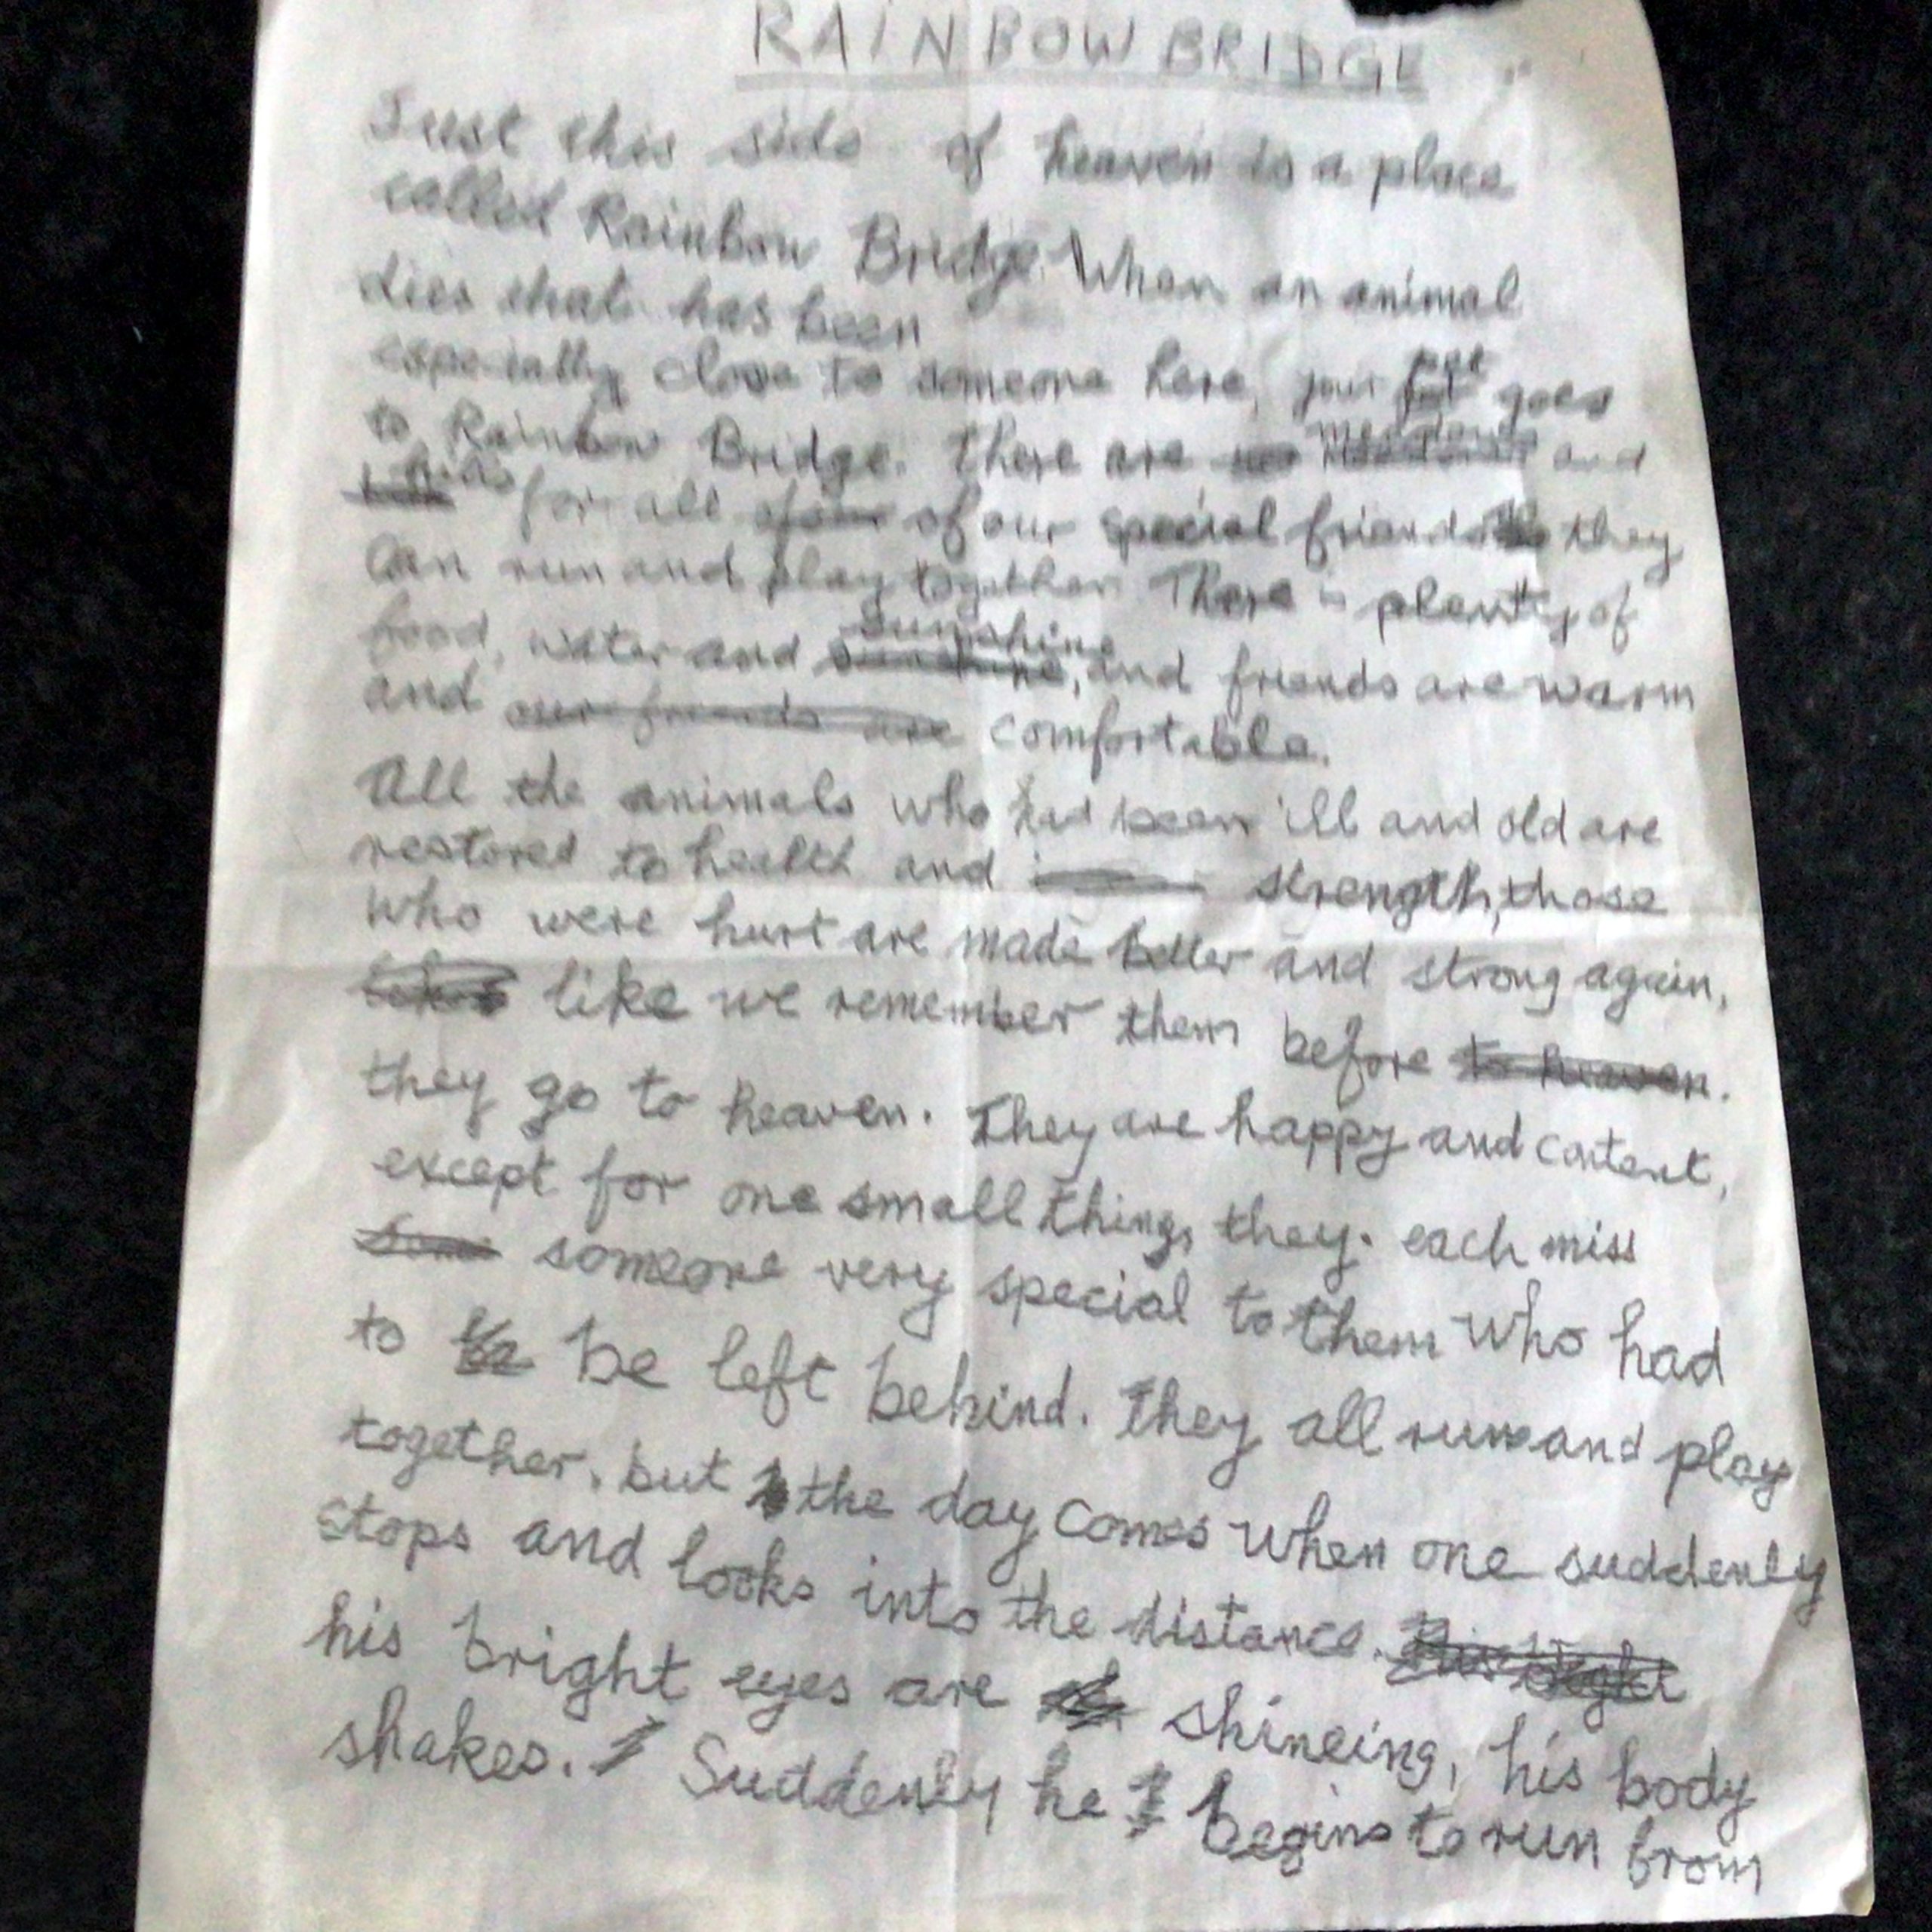 RAINBOW BRIDGE
Just this side of heaven is a place
called Rainbow Bridge. When an animal
dies that has been
especially close to someone here, your pet goes
to Rainbow Bridge. There are meadows and
hills for all of our special friends they
can run and play together. There is plenty of
food, water and sunshine, and friends are warm
and our friends are comfortable.
All the animals who had been ill and old are
restored to health and strength, those
who were hurt are made better and strong again,
like we remember them before to heaven.
they go to heaven. They are happy and content,
except for one small thing, they. each miss
some someone very special to them who had
to be left behind. They all run and play
together. but the day comes when one suddenly
stops and looks into the distance.
his bright eyes are shineing, his body
shakes. Suddenly he begins to run from